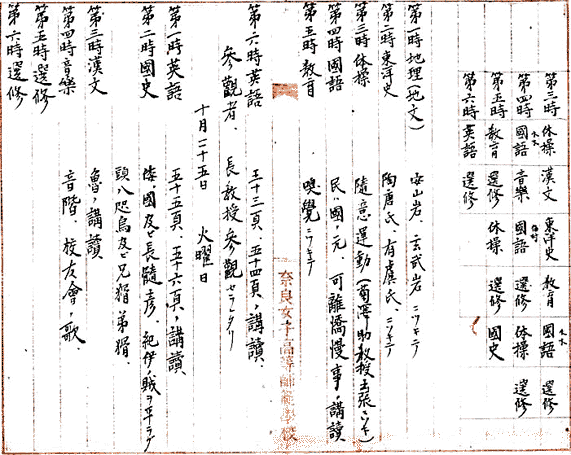 第三時 体操 漢文 東洋史 教育 國語 選修
第四時 國語 音樂 國語 選修 体操 選修
第五時 教育 選修 体操 選修 國史
第六時 英語 選修
第一時 地理(地文) 安山岩、玄武岩ニツキテ
第二時 東洋史 陶唐氏、有虞氏、ニツキテ
第三時 体操 隨意運動(菊澤助教授出張ニツキ)
第四時 國語 民ハ國ノ元、可離憍慢事ノ講讀
第五時 教育 嗅覺ニツキテ
第六時 英語 五十三頁、五十四頁ノ講讀、
参観者、長ノ教授参観セラレタリ
十月二十五日 火曜日
第一時 英語 五十五頁、五十六頁ノ講讀、
第二時 國史 倭ノ國及ビ長髓彦、紀伊ノ賊ヲ平ラグ
頭八咫烏及ビ兄猾弟猾、
第三時 漢文 魯ノ講讀
第四時 音樂 音階、校友會ノ歌、
第五時 選修
第六時 選修
奈良女子高等師範學校